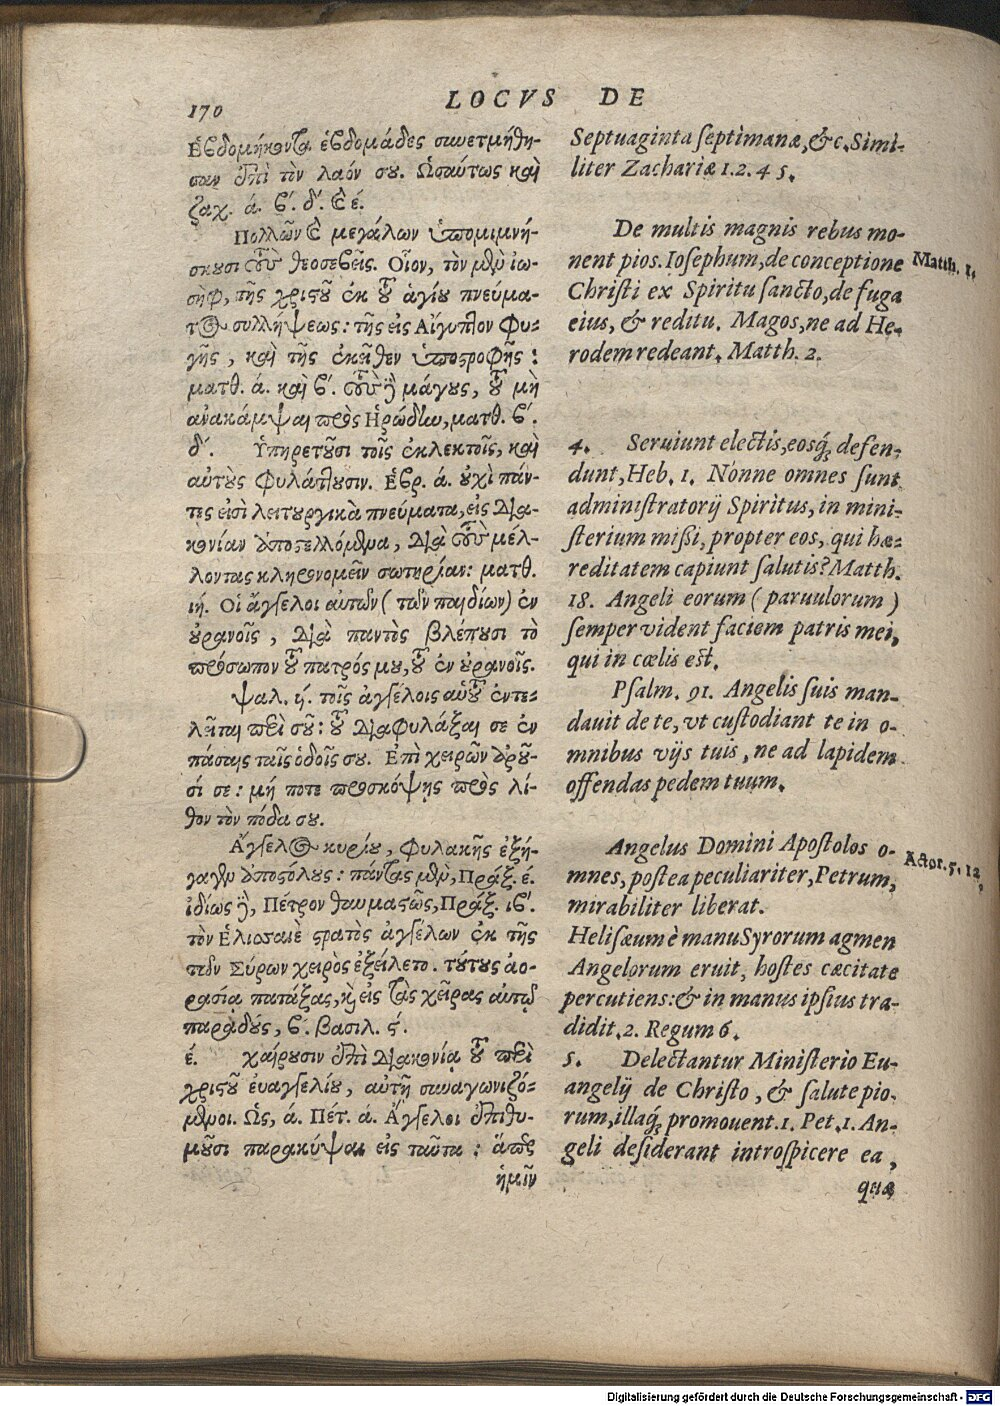 170
LOCVS DE
Ἑβδομήκοντα ἑβδομάδες συνετμήθη-
σαν ἐπὶ τὸν λαόν σου. Ὡσαύτως καὶ
ζαχ. ά. β'. δ'. καὶ έ.
Πολλῶν καὶ μεγάλων ὑπομιμνή-
σκουσι τοὺς θεοσεβεῖς. Οἷον, τὸν μὲν ἰω-
σὴφ, τῆς χριστοῦ ἐκ τοῦ ἁγίου πνεύμα-
τος συλλήψεως: τῆς εἰς Αἴγυπτον φυ-
γῆς, καὶ τῆς ἐκεῖθεν ὑποστροφῆς:
ματθ. ά. καὶ β'. τοὺς δὲ μάγους, τοῦ μὴ
ἀνακάμψαι πρὸς Ἡρώδην, ματθ. β'.
δ'. Ὑπηρετοῦσι τοῖς ἐκλεκτοῖς, καὶ
αὐτοὺς φυλάττουσιν. Ἑβρ. ά. οὐχὶ πάν-
τες εἰσὶ λειτουργικὰ πνεύματα, εἰς δια-
κονίαν ἀποστελλόμενα, διὰ τοὺς μέλ-
λοντας κληρονομεῖν σωτηρίαν: ματθ.
ιή. Οἱ ἄγγελοι αὐτῶν (τῶν παιδίων) ἐν
οὐρανοῖς, διὰ παντὸς βλέπουσι τὸ
πρόσωπον τοῦ πατρός μου, τοῦ ἐν οὐρανοῖς.
ψαλ. ϟ. τοῖς ἀγγέλοις αὑτοῦ ἐντε-
λεῖται περὶ σοῦ: τοῦ διαφυλάξαι σε ἐν
πάσαις ταῖς ὁδοῖς σου. Ἐπὶ χειρῶν ἀροῦ-
σί σε: μή ποτε προσκόψῃς πρὸς λί-
θον τὸν πόδα σου.
Ἄγγελος κυρίου, φυλακῆς ἐξή-
γαγεν ἀποστόλους: πάντας μὲν, Πράξ. έ.
ἰδίως δὲ, Πέτρον θαυμαστῶς, Πράξ. ιβ'.
τὸν Ἑλισσαιὲ στρατὸς ἀγγέλων ἐκ τῆς
τῶν Σύρων χειρὸς ἐξείλετο. τούτους ἀο-
ρασίᾳ πατάξας, καὶ εἰς τὰς χεῖρας αὐτῷ
παραδούς, β'. βασιλ. ϛ'.
έ. χαίρουσιν ἐπὶ διακονίᾳ τοῦ περὶ
χριστοῦ ἐυαγγελίου, αὐτῇ συναγωνιζό-
μενοι. Ὡς, ά. Πέτ. ά. Ἄγγελοι ἐπιθυ-
μοῦσι παρακύψαι εἰς ταῦτα: ἅπερ
ἡμῖν
Septuaginta septimanæ, &c. Simi-
liter Zachariæ 1. 2. 4 5.
De multis magnis rebus mo-
nent pios. Iosephum, de conceptione
Christi ex Spiritu sancto, de fuga
eius, & reditu. Magos, ne ad He-
rodem redeant. Matth. 2.
4. Seruiunt electis, eosq́; defen-
dunt, Heb. 1. Nónne omnes sunt
administratorij Spiritus, in mini-
sterium missi, propter eos, qui hæ-
reditatem capiunt salutis? Matth.
18. Angeli eorum ( paruulorum )
semper vident faciem patris mei,
qui in cœlis est.
Psalm. 91. Angelis suis man-
dauit de te, vt custodiant te in o-
mnibus vijs tuis, ne ad lapidem
offendas pedem tuum.
Angelus Domini Apostolos o-
mnes, postea peculiariter, Petrum,
mirabiliter liberat.
Helisæum è manu Syrorum agmen
Angelorum eruit, hostes cæcitate
percutiens: & in manus ipsius tra-
didit. 2. Regum 6.
5. Delectantur Ministerio Eu-
angelij de Christo, & salute pio-
rum, illaq́; promouent. 1. Pet. 1. An-
geli desiderant introspicere ea,
quæ
Matth. 1.
Actor. 5. 12.
Digitalisierung gefördert durch die Deutsche Forschungsgemeinschaft - DFG